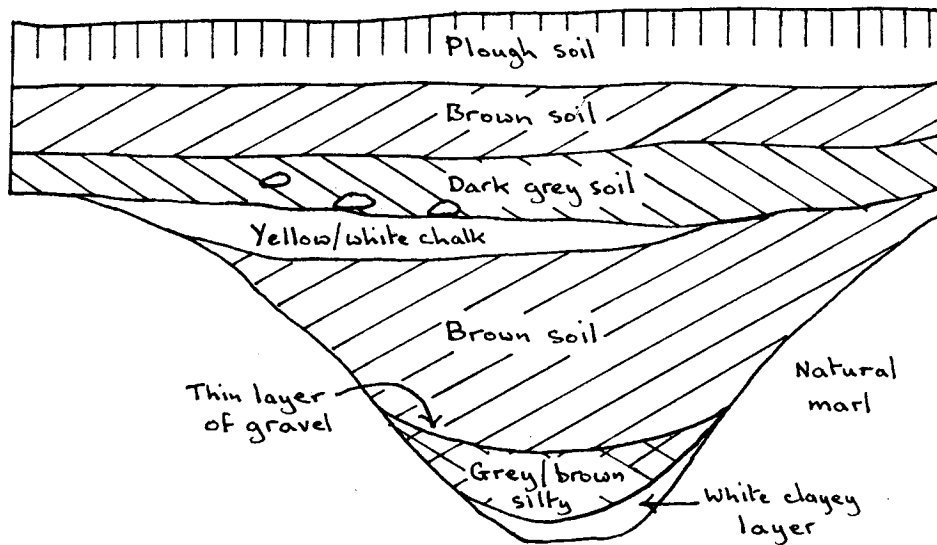 Plough soil
Brown soil
Dark grey soil
Yellow/white chalk
Brown soil
Thin layer
of gravel
Natural
marl
Grey/brown
silty
White clayey
layer